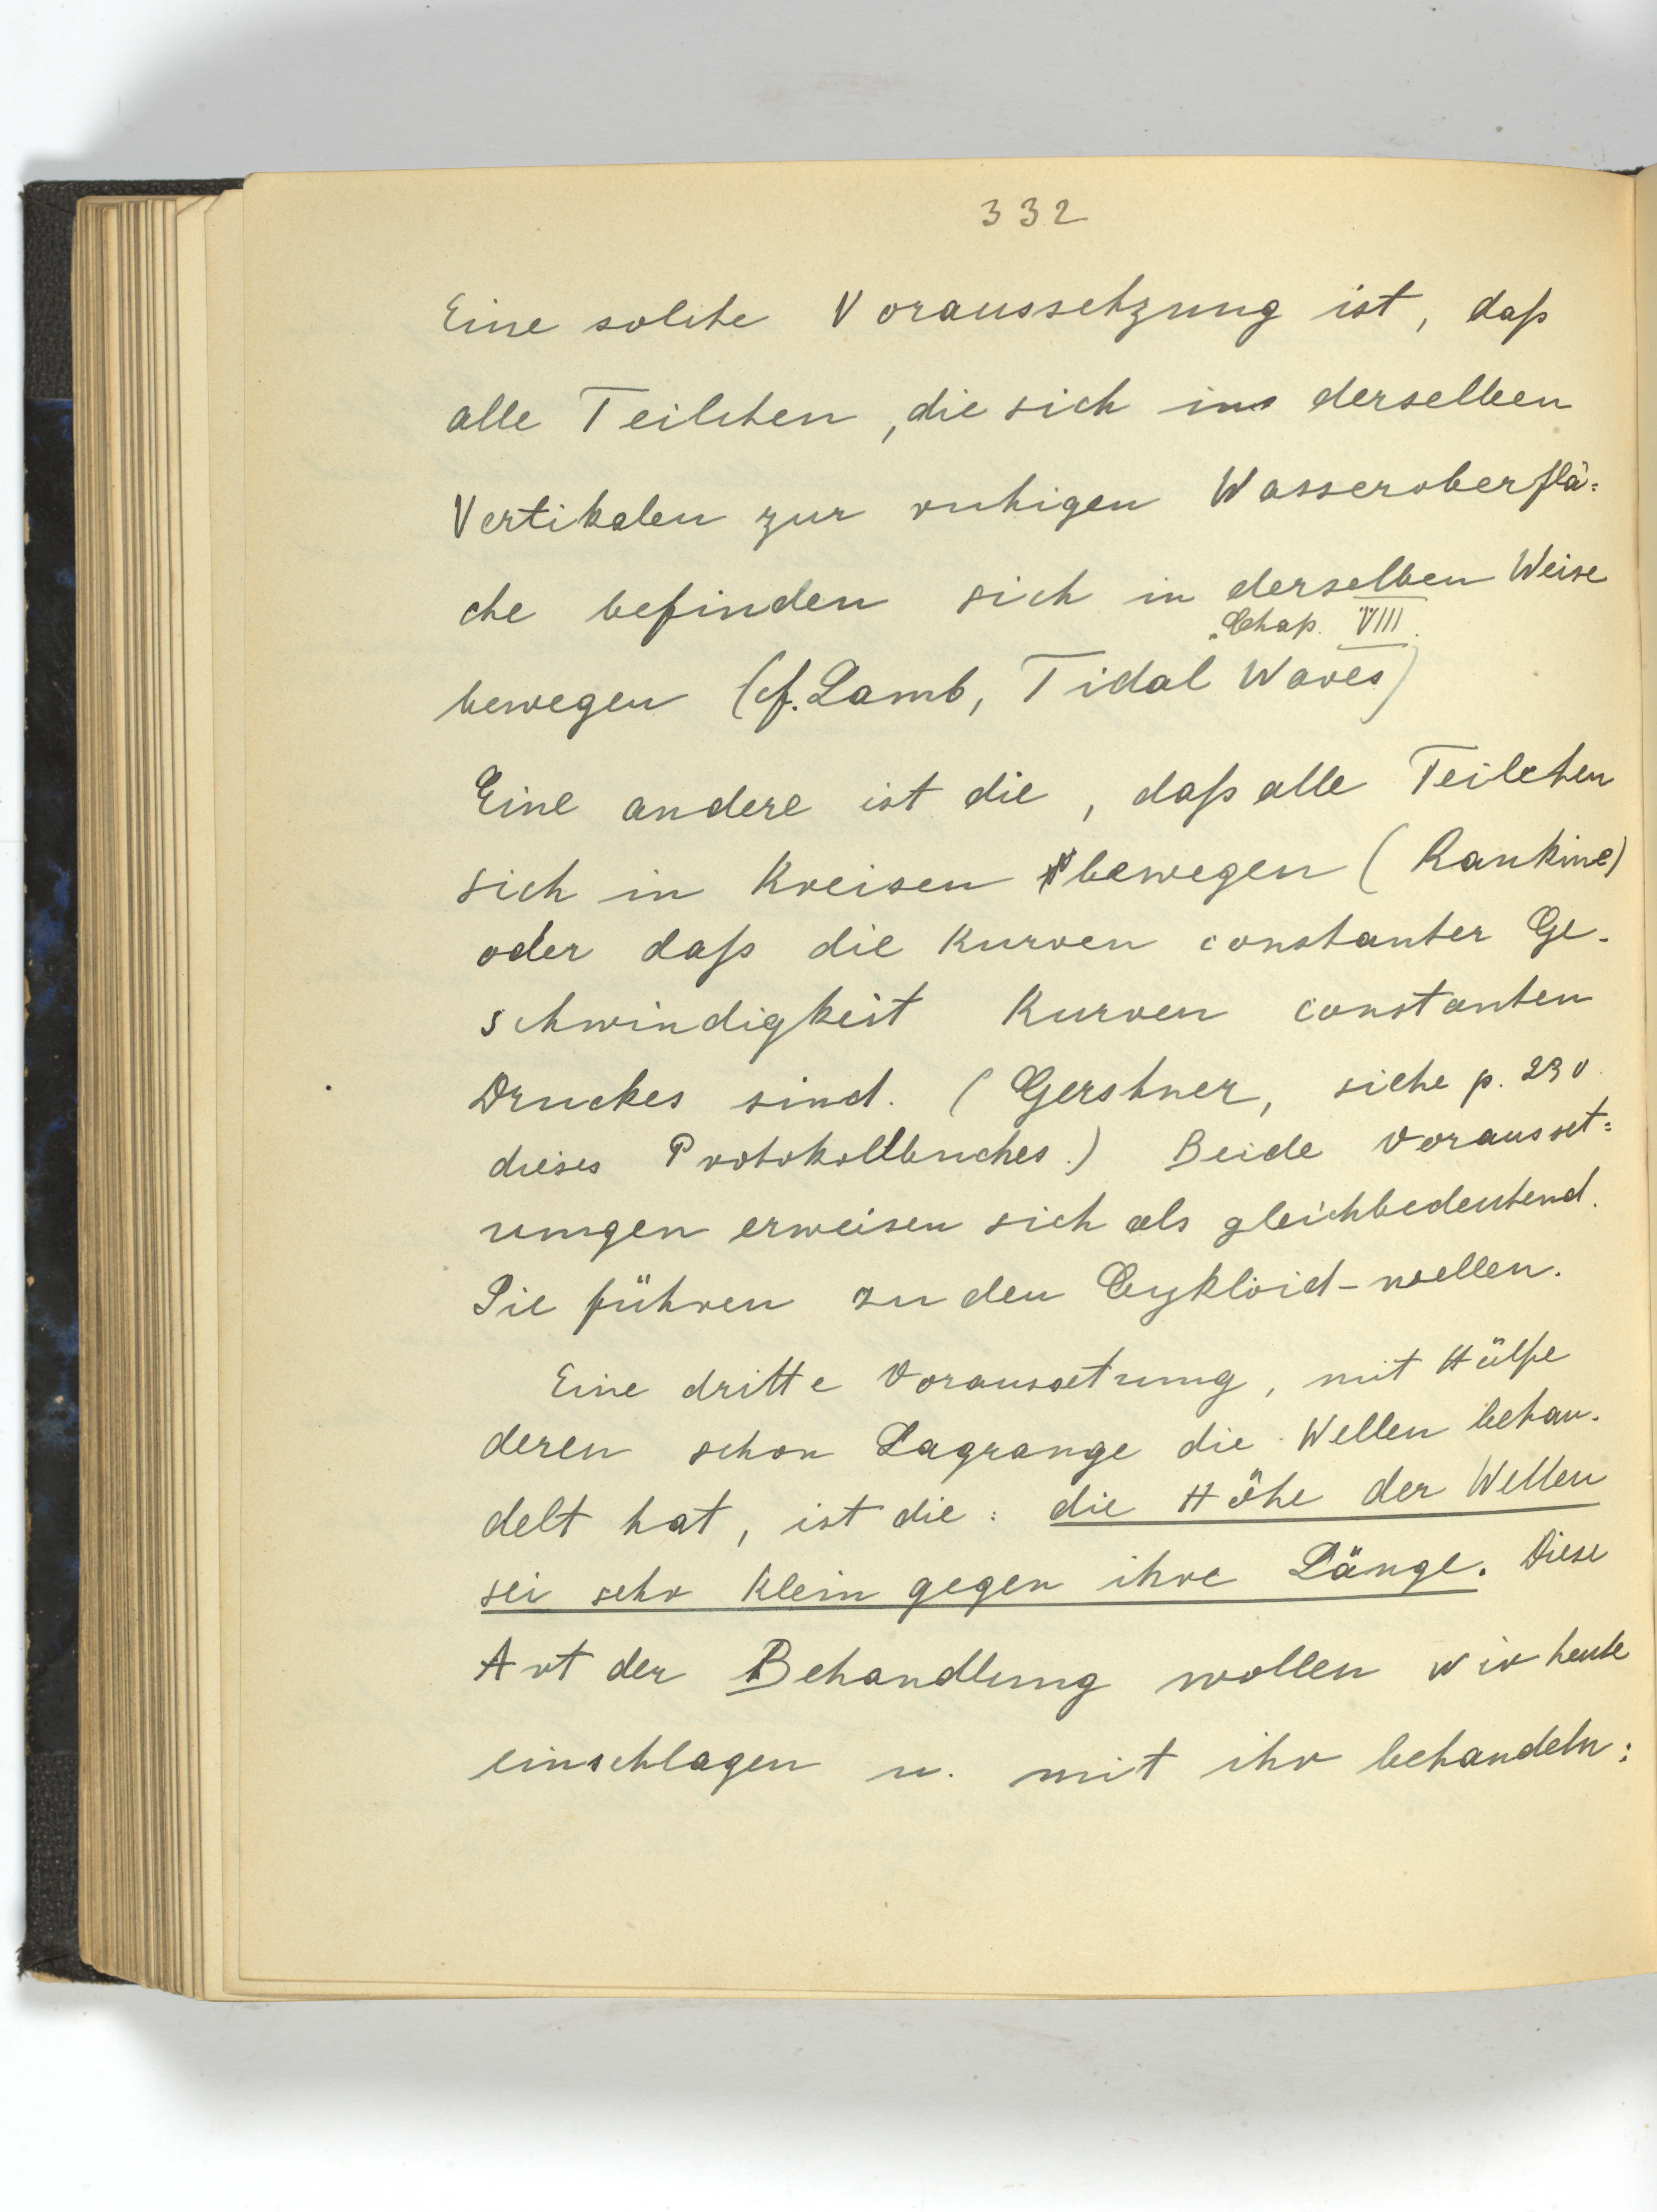 332
Eine solche Voraussetzung ist, daß
alle Teilchen, die sich in derselben
Vertikalen zur ruhigen Wasseroberflä=
che befinden sich in derselben Weise
Chap. VIII.
bewegen (cf. Lamb, Tidal Waves)
Eine andere ist die, daß alle Teilchen
sich in Kreisen bewegen (Rankine)
oder daß die Kurven constanter Ge-
schwindigkeit Kurven constanten
Druckes sind. (Gerstner, siehe p. 230
dieses Protokollbuches.) Beide Vorausset=
zungen erweisen sich als gleichbedeutend.
Sie führen zu den Cykloid-wellen.
Eine dritte Voraussetzung, mit Hülfe
deren schon Lagrange die Wellen behan-
delt hat, ist die: die Höhe der Wellen
sei sehr klein gegen ihre Länge. Diese
Art der Behandlung wollen wir heute
einschlagen u. mit ihr behandeln: